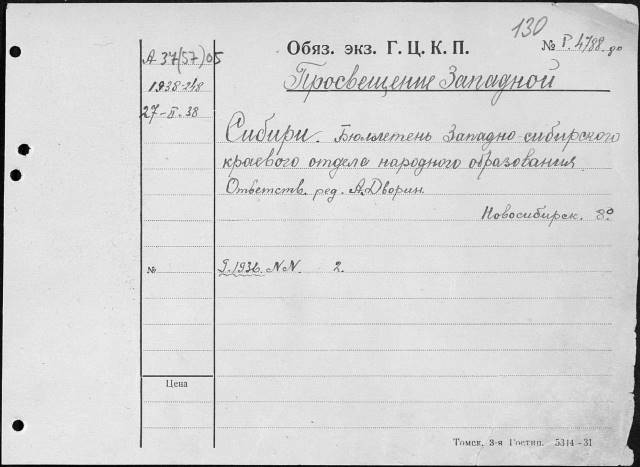 130
Обяз. экз. Г. Ц. К. П.
№ Р. 4788 до
А 37(57)05
1938-248
27-II-38
Просвещение Западной
Сибири. Бюллетень Западно-сибирского
краевого отдела народного образования
Ответств. ред. А. Дворин.
Новосибирск. 8º
№
Я. 1936. NN. 2.
Цена
Томск, 3-я Гостип. 5314-31